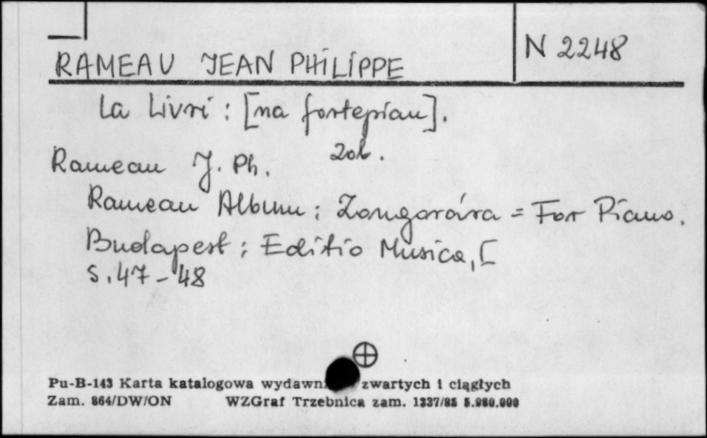 RAMEAU JEAN PHILIPPE
N 2248
La Livri : [na fortepian].
Rameau J. Ph. Zob.
Rameau Album : Zongorára = For Piano.
Budapest : Editio Musica, [
S. 47-48
Pu-B-143 Karta katalogowa wydawn zwartych i ciągłych
Zam. 864/DW/ON WZGraf Trzebnica zam. 1337/85 5.980.000